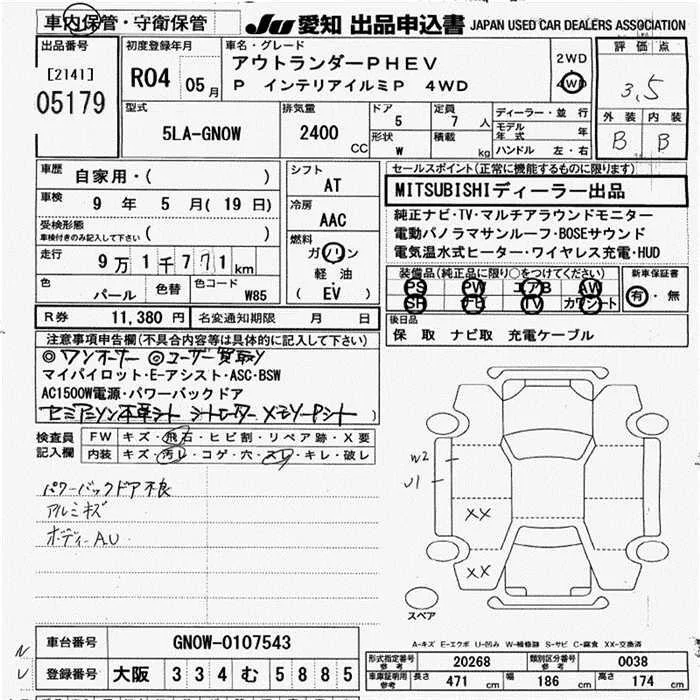 車内保管・守衛保管
JU 愛知 出品申込書 JAPAN USED CAR DEALERS ASSOCIATION
出品番号
[2141]
05179
初度登録年月
R04 05月
車名・グレード
アウトランダーPHEV
P インテリアイルミP 4WD
2WD
4WD
評価点
3.5
外装 内装
B B
型式
5LA-GNOW
排気量
2400 CC
ドア
5
形状
W
定員
7 人
積載
kg
ディーラー・並行
モデル年式 年
ハンドル 左・右
車歴
自家用・( )
車検
9 年 5 月 ( 19 日)
受検形態
車検付きのみ記入して下さい ( )
走行
9万1千771km
色
パール
色替
色コード
W85
シフト
AT
冷房
AAC
燃料
ガソリン
軽油
( EV )
R券 11,380 円
名変通知期限 月 日
セールスポイント(正常に機能するものに限ります)
MITSUBISHIディーラー出品
純正ナビ・TV・マルチアラウンドモニター
電動パノラマサンルーフ・BOSEサウンド
電気温水式ヒーター・ワイヤレス充電・HUD
装備品(純正品に限り○をつけてください)
PS PW エアB AW
SR TV カワシート
新車保証書
有・無
後日品
保 取 ナビ取 充電ケーブル
注意事項申告欄(不具合内容等は具体的に記入して下さい)
◎ワンオーナー ◎ユーザー買取り
マイパイロット・E-アシスト・ASC・BSW
AC1500W電源・パワーバックドア
セミアニリン本革シート シートヒーター メモリーPシート
検査員
記入欄
FW キズ・飛石・ヒビ割・リペア跡・X要
内装 キズ・汚レ・コゲ・穴・スレ・キレ・破レ
パワーバックドア不良
アルミキズ
ボディーA.U
W2
U1
XX
XX
スペア
A-キズ E-エクボ U-凹み W-補修跡 S-サビ C-腐食 XX-交換済
車台番号 GNOW-0107543
登録番号 大阪 334 む 5885
形式指定番号 参考 20268
類別区分番号 参考 0038
車庫証明用 参考 長さ 471 cm 幅 186 cm 高さ 174 cm